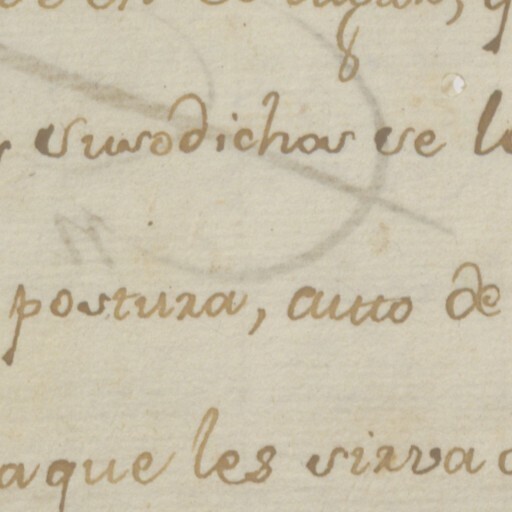 susodichas se l
postura, autto de
aque les sirva